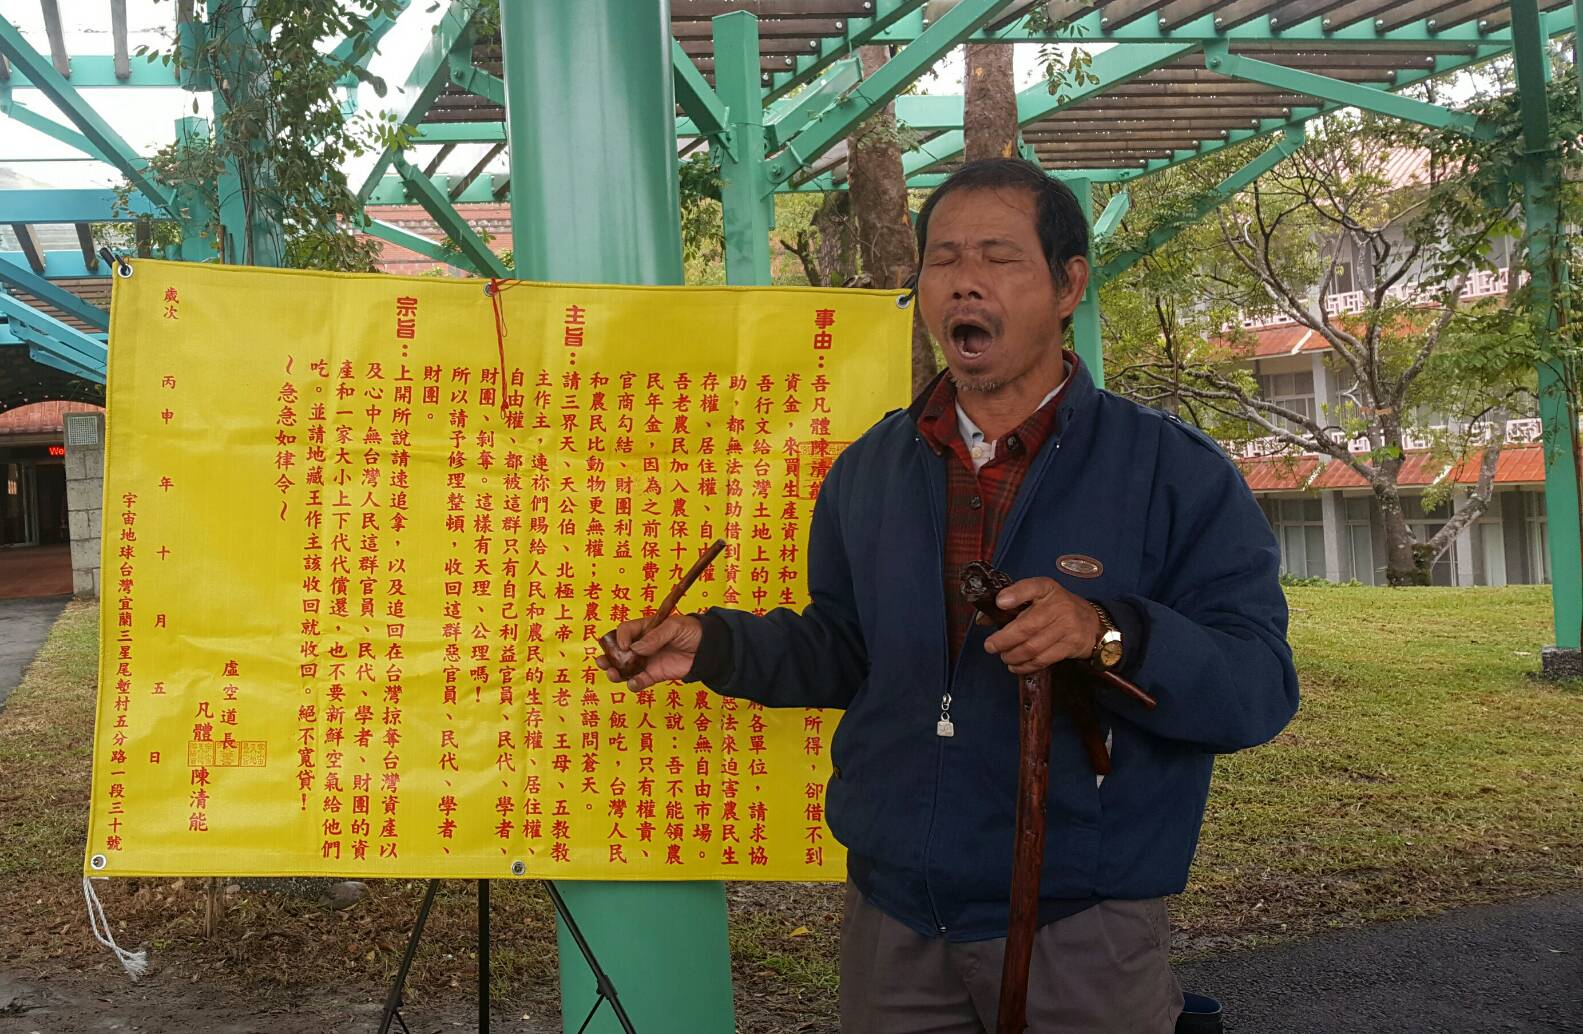 事由：吾凡體陳清能
資金，來買生產資材和生
民所得，卻借不到
吾行文給台灣土地上的中華
府各單位，請求協
助，都無法協助借到資金
惡法來迫害農民生
存權、居住權、自由權。
農舍無自由市場。
吾老農民加入農保十九
來說：吾不能領農
民年金，因為之前保費有重
群人員只有權貴、
官商勾結、財團利益。奴隸
口飯吃，台灣人民
和農民比動物更無權；老農民只有無語問蒼天。
主旨：請三界天、天公伯、北極上帝、五老、王母、五教教
主作主，連祢們賜給人民和農民的生存權、居住權、
自由權、都被這群只有自己利益官員、民代、學者、
財團、剝奪。這樣有天理、公理嗎！
所以請予修理整頓，收回這群惡官員、民代、學者、
財團。
宗旨：上開所說請速追拿，以及追回在台灣掠奪台灣資產以
及心中無台灣人民這群官員、民代、學者、財團的資
產和一家大小上下代代償還，也不要新鮮空氣給他們
吃。並請地藏王作主該收回就收回。絕不寬貸！
～急急如律令～
虛空道長
凡體 陳清能
歲次 丙申 年 十 月 五 日
宇宙地球台灣宜蘭三星尾塹村五分路一段三十號
We